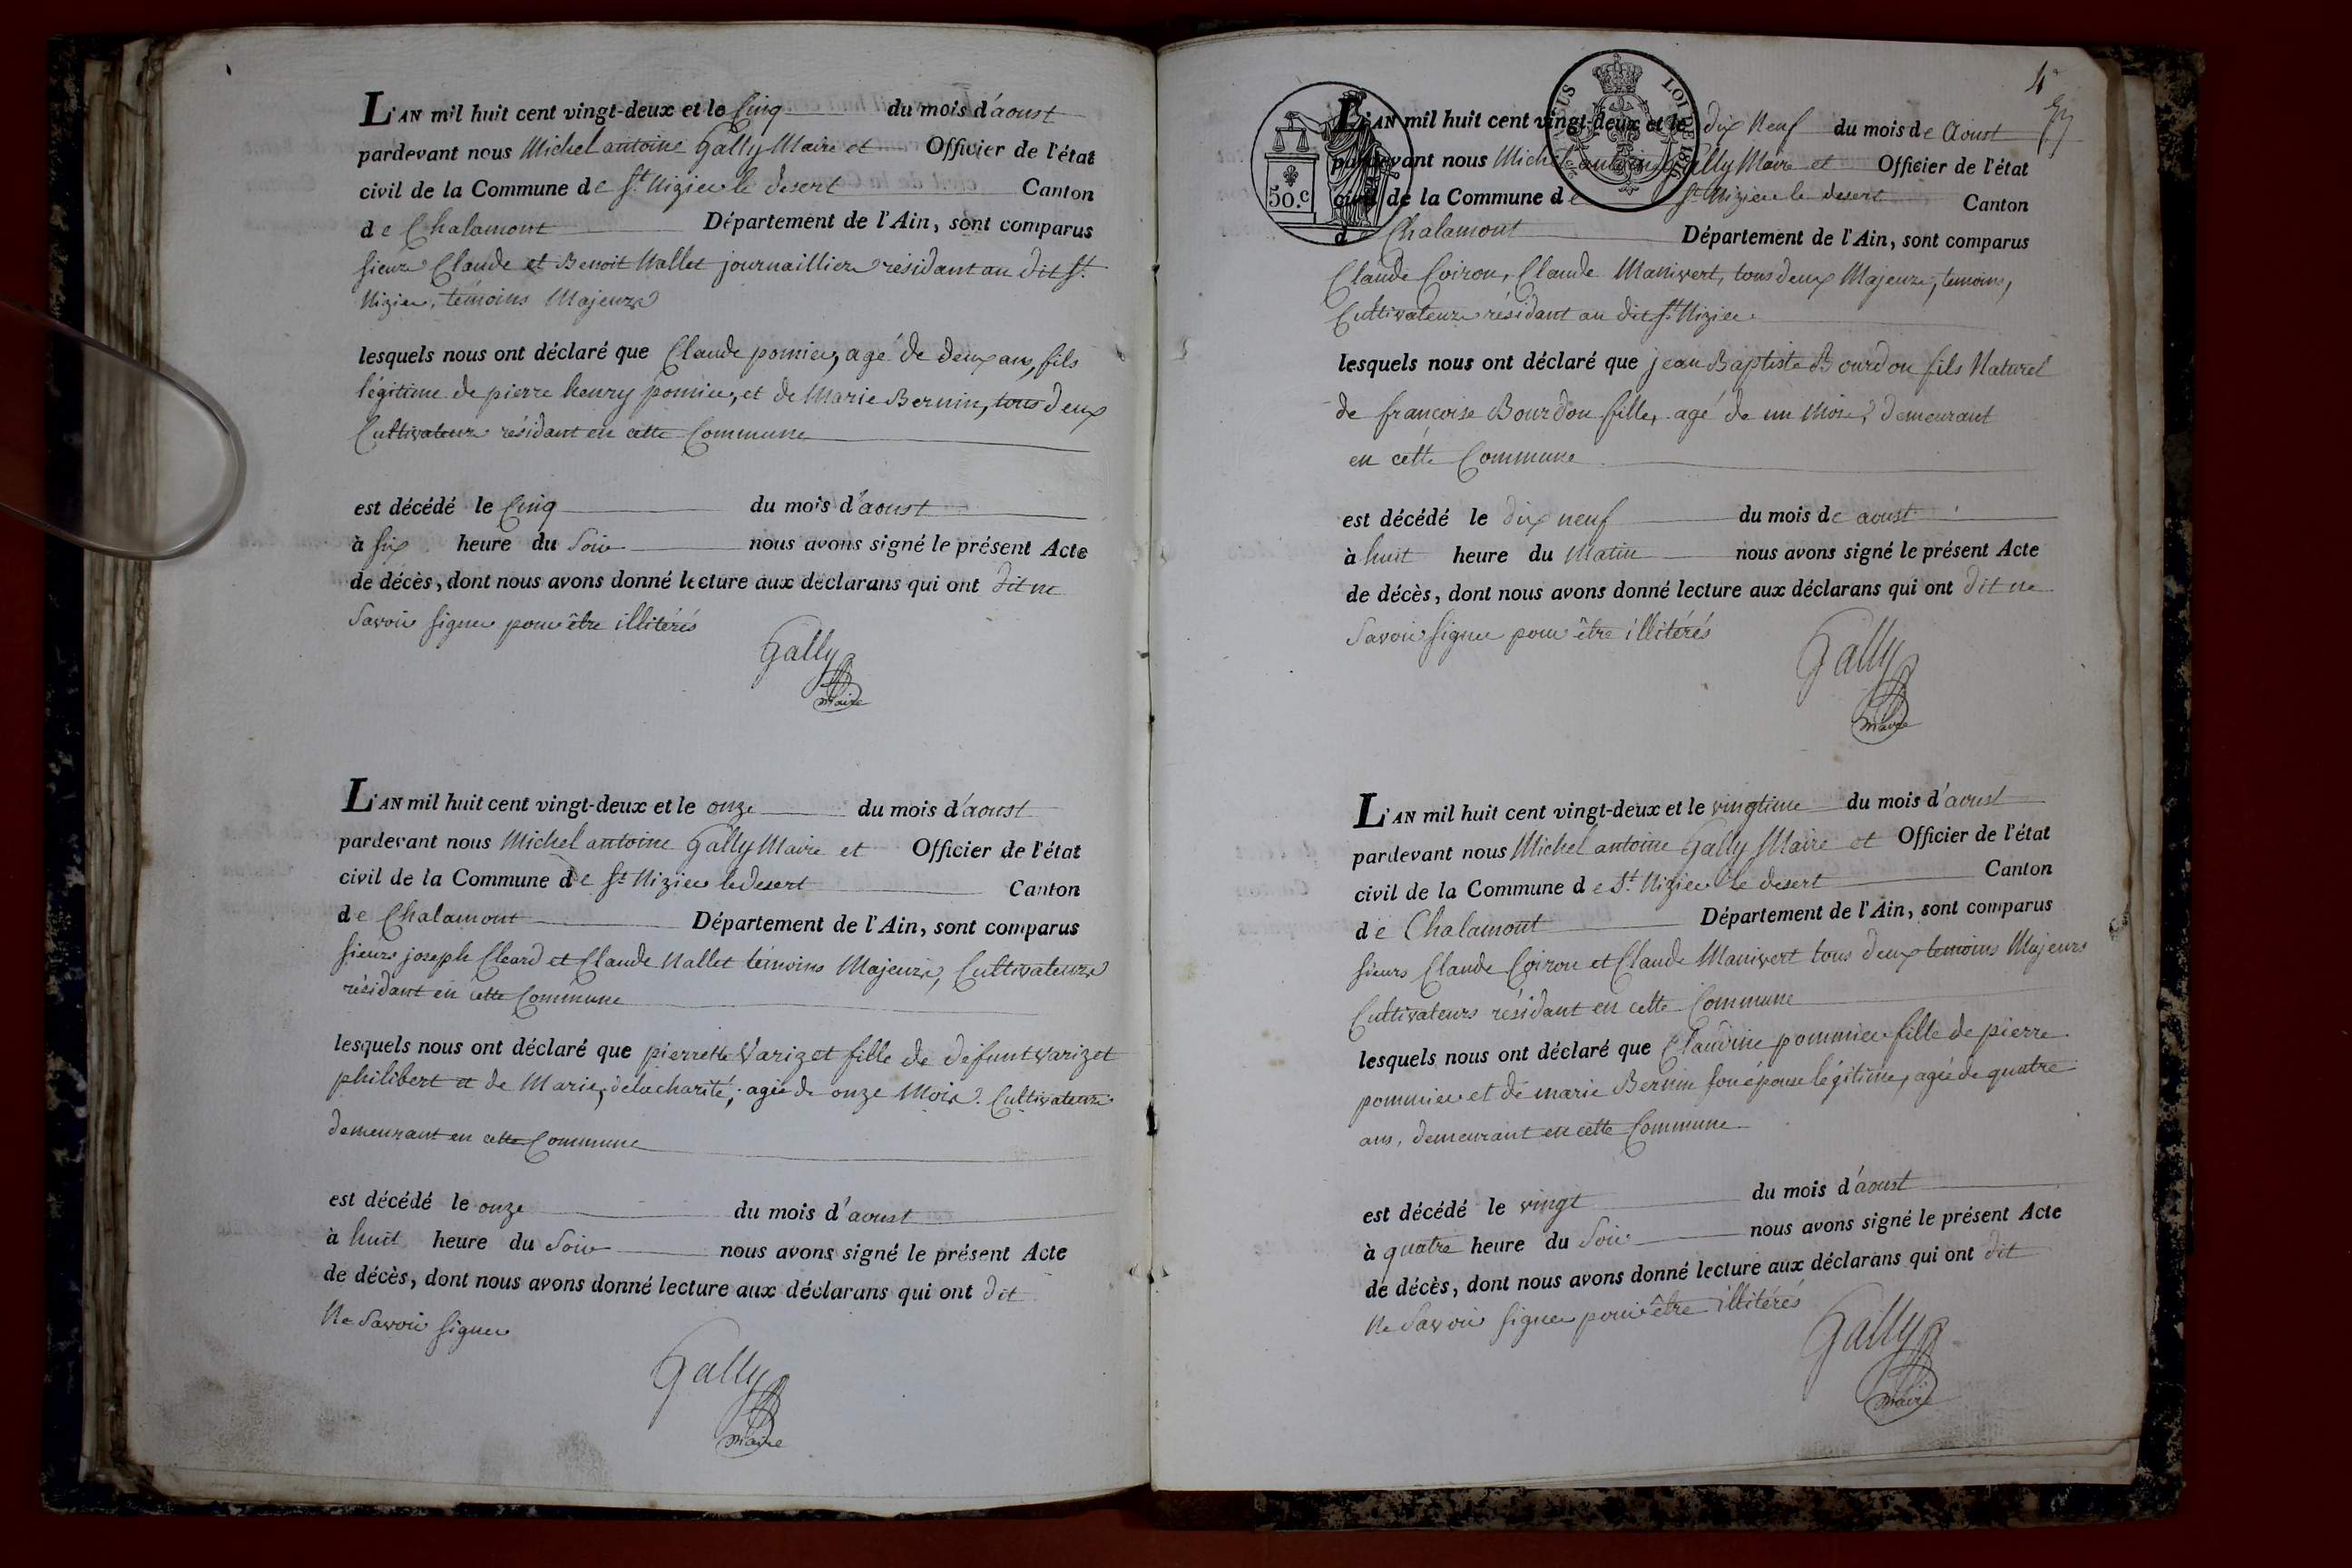 L'AN mil huit cent vingt-deux et le Cinq du mois d'aoust
pardevant nous Michel antoine Gally Maire et Officier de l'état
civil de la Commune de St. Nizier le desert Canton
de Chalamont Département de l'Ain, sont comparus
sieurs Claude et Benoit Nallet journaillier résidant au dit St.
Nizier, témoins Majeurs
lesquels nous ont déclaré que Claude pomier, agé de deux ans, fils
légitime de pierre henry pomier, et de Marie Bernin, tous deux
Cultivateurs résidant en cette Commune
est décédé le Cinq du mois d'aoust
à six heure du Soir nous avons signé le présent Acte
de décès, dont nous avons donné lecture aux déclarans qui ont dit ne
Savoir signer pour être illitérés
Gally
maire
L'AN mil huit cent vingt-deux et le onze du mois d'aoust
pardevant nous Michel antoine Gally Maire et Officier de l'état
civil de la Commune de St. Nizier le desert Canton
de Chalamont Département de l'Ain, sont comparus
sieurs joseph Cleard et Claude Nallet témoins Majeurs, Cultivateurs
résidant en cette Commune
lesquels nous ont déclaré que pierrette Varizet fille de défunt varizet
philibert et de Marie, delacharité, agée de onze Mois. Cultivateurs
demeurant en cette Commune
est décédé le onze du mois d'aoust
à huit heure du Soir nous avons signé le présent Acte
de décès, dont nous avons donné lecture aux déclarans qui ont dit
Ne Savoir signer
Gally
maire
4
TIMBRE LOI DE 1816
50.c
L'AN mil huit cent vingt-deux et le dix Neuf du mois de Aoust
pardevant nous Michel antoine Gally Maire et Officier de l'état
civil de la Commune de St. Nizier le desert Canton
de Chalamont Département de l'Ain, sont comparus
Claude Coiron, Claude Manivert, tous deux Majeurs, temoins,
Cultivateurs résidant au dit St. Nizier.
lesquels nous ont déclaré que jean Baptiste Bourdon fils Naturel
de françoise Bourdon fille, agé de un Mois, demeurant
en cette Commune
est décédé le dix neuf du mois de aoust
à huit heure du Matin nous avons signé le présent Acte
de décès, dont nous avons donné lecture aux déclarans qui ont dit ne
Savoir signer pour être illitérés
Gally
maire
L'AN mil huit cent vingt-deux et le vingtime du mois d'aoust
pardevant nous Michel antoine Gally Maire et Officier de l'état
civil de la Commune de St. Nizier le desert Canton
de Chalamont Département de l'Ain, sont comparus
sieurs Claude Coiron et Claude Manivert tous deux temoins Majeurs
Cultivateurs résidant en cette Commune
lesquels nous ont déclaré que Claudine pommier fille de pierre
pommier et de marie Bernin son épouse légitime, agée de quatre
ans, demeurant en cette Commune
est décédé le vingt du mois d'aoust
à quatre heure du Soir nous avons signé le présent Acte
de décès, dont nous avons donné lecture aux déclarans qui ont dit
Ne Savoir signer pour être illitérés
Gally
maire